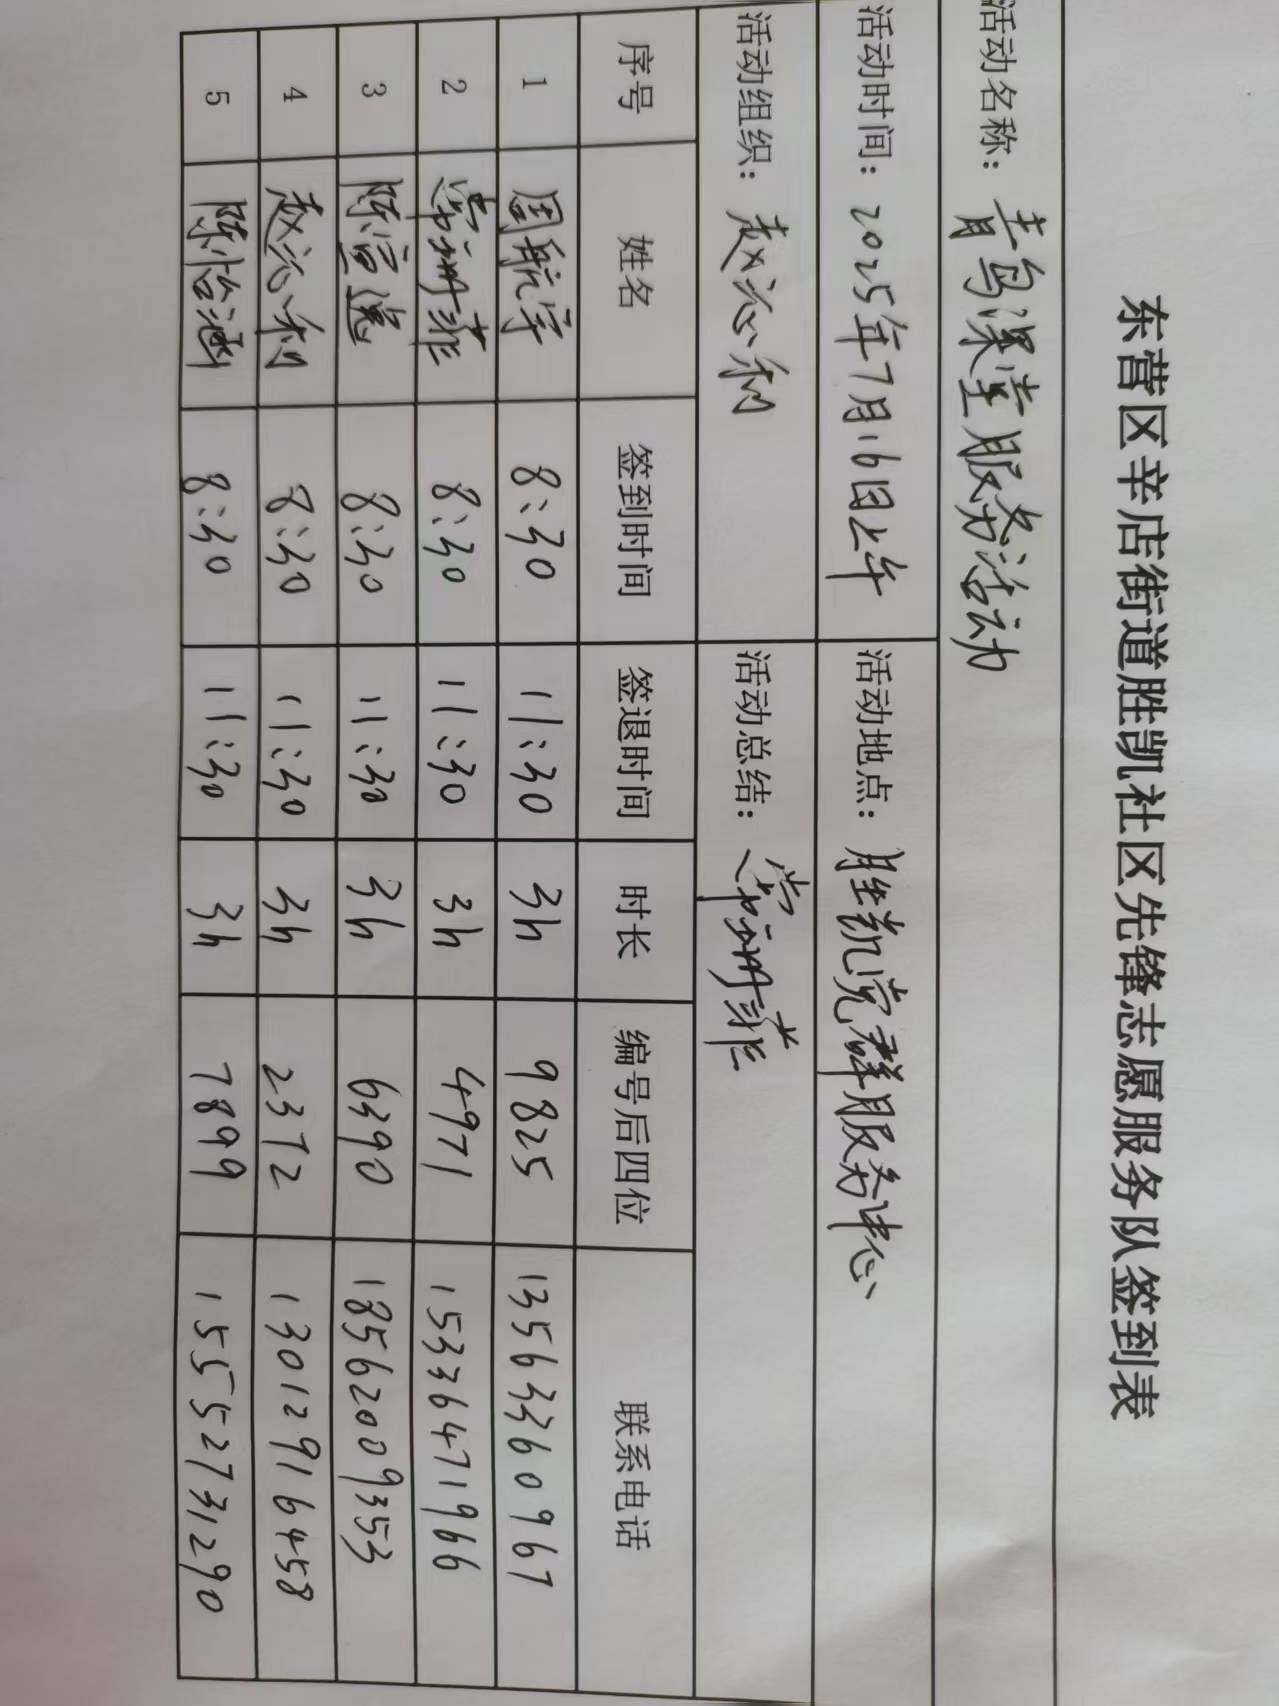 东营区辛店街道胜凯社区先锋志愿服务队签到表
活动名称：青鸟课堂服务活动
活动时间：2025年7月16日上午 活动地点：胜凯党群服务中心
活动组织：赵沁利 活动总结：常珊菲
序号 姓名 签到时间 签退时间 时长 编号后四位 联系电话
1 周航宇 8:30 11:30 3h 9825 13563360967
2 常珊菲 8:30 11:30 3h 4971 15336471966
3 陈宣逸 8:30 11:30 3h 6390 18562009353
4 赵沁利 8:30 11:30 3h 2372 13012916458
5 陈怡涵 8:30 11:30 3h 7899 15552731290